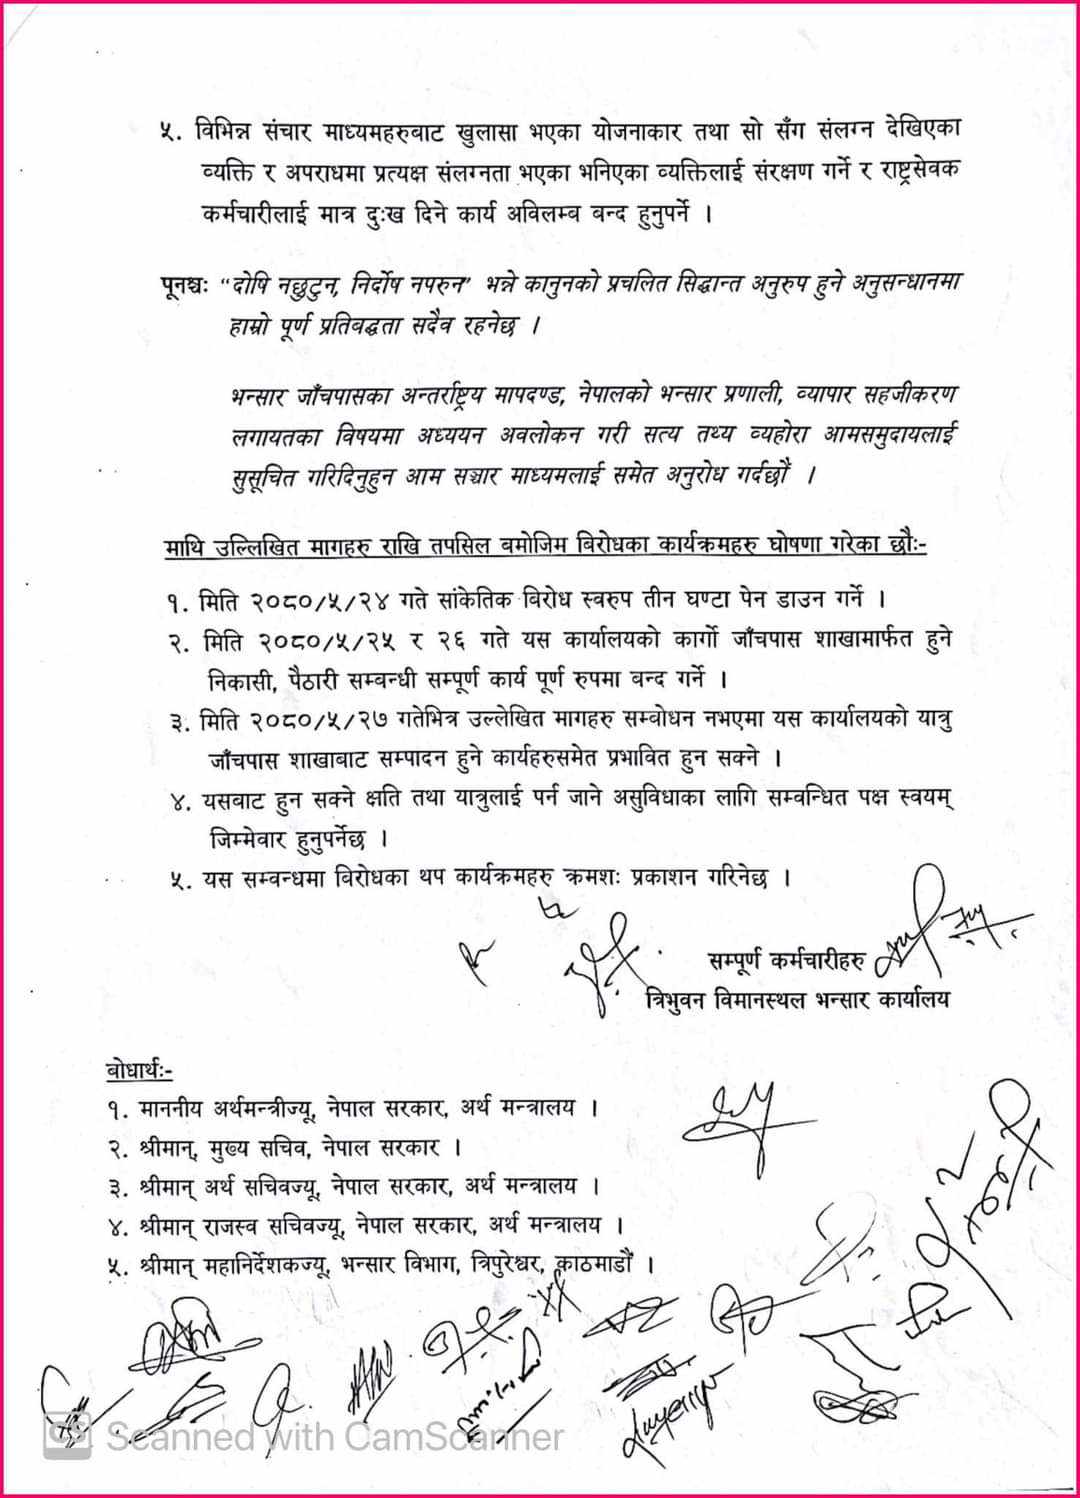 ५. विभिन्न संचार माध्यमहरुबाट खुलासा भएका योजनाकार तथा सो सँग संलग्न देखिएका
व्यक्ति र अपराधमा प्रत्यक्ष संलग्नता भएका भनिएका व्यक्तिलाई संरक्षण गर्ने र राष्ट्रसेवक
कर्मचारीलाई मात्र दुःख दिने कार्य अविलम्ब बन्द हुनुपर्ने ।
पूनश्चः “दोषि नछुटुन, निर्दोष नपरुन” भन्ने कानुनको प्रचलित सिद्धान्त अनुरुप हुने अनुसन्धानमा
हाम्रो पूर्ण प्रतिबद्धता सदैव रहनेछ ।
भन्सार जाँचपासका अन्तर्राष्ट्रिय मापदण्ड, नेपालको भन्सार प्रणाली, व्यापार सहजीकरण
लगायतका विषयमा अध्ययन अवलोकन गरी सत्य तथ्य व्यहोरा आमसमुदायलाई
सुसूचित गरिदिनुहुन आम सञ्चार माध्यमलाई समेत अनुरोध गर्दछौं ।
माथि उल्लिखित मागहरु राखि तपसिल बमोजिम बिरोधका कार्यक्रमहरु घोषणा गरेका छौः-
१. मिति २०८०/५/२४ गते सांकेतिक विरोध स्वरुप तीन घण्टा पेन डाउन गर्ने ।
२. मिति २०८०/५/२५ र २६ गते यस कार्यालयको कार्गो जाँचपास शाखामार्फत हुने
निकासी, पैठारी सम्बन्धी सम्पूर्ण कार्य पूर्ण रुपमा बन्द गर्ने ।
३. मिति २०८०/५/२७ गतेभित्र उल्लेखित मागहरु सम्बोधन नभएमा यस कार्यालयको यात्रु
जाँचपास शाखाबाट सम्पादन हुने कार्यहरुसमेत प्रभावित हुन सक्ने ।
४. यसबाट हुन सक्ने क्षति तथा यात्रुलाई पर्न जाने असुविधाका लागि सम्वन्धित पक्ष स्वयम्
जिम्मेवार हुनुपर्नेछ ।
५. यस सम्वन्धमा विरोधका थप कार्यक्रमहरु क्रमशः प्रकाशन गरिनेछ ।
सम्पूर्ण कर्मचारीहरु
त्रिभुवन विमानस्थल भन्सार कार्यालय
बोधार्थः-
१. माननीय अर्थमन्त्रीज्यू, नेपाल सरकार, अर्थ मन्त्रालय ।
२. श्रीमान्, मुख्य सचिव, नेपाल सरकार ।
३. श्रीमान् अर्थ सचिवज्यू, नेपाल सरकार, अर्थ मन्त्रालय ।
४. श्रीमान् राजस्व सचिवज्यू, नेपाल सरकार, अर्थ मन्त्रालय ।
५. श्रीमान् महानिर्देशकज्यू, भन्सार विभाग, त्रिपुरेश्वर, काठमाडौं ।
CS Scanned with CamScanner